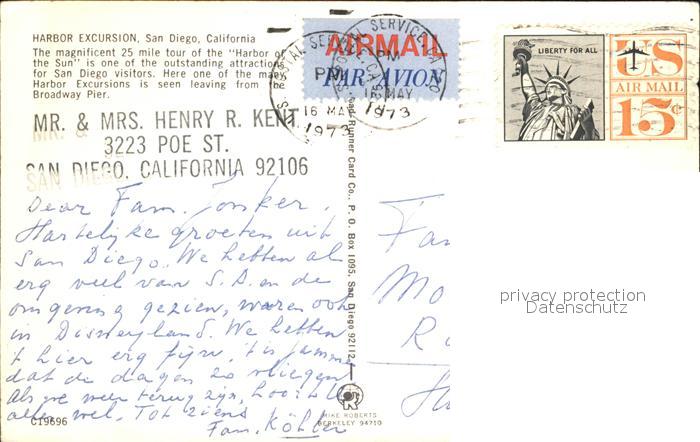 HARBOR EXCURSION, San Diego, California
The magnificent 25 mile tour of the "Harbor of
the Sun" is one of the outstanding attractions
for San Diego visitors. Here one of the many
Harbor Excursions is seen leaving from
Broadway Pier.
AIRMAIL
PAR AVION
PM
16 MAY
1973
PM
16 MAY
1973
LIBERTY FOR ALL
US
AIR MAIL
15c
MR. & MRS. HENRY R. KENT
3223 POE ST.
SAN DIEGO, CALIFORNIA 92106
Dear Fam. Jonker.
Hartelijke groeten uit
San Diego. We hebben al
erg veel van S.D. en de
omgeving gezien, waren ook
in Disneyland. We hebben
't hier erg fijn, 't is jammer
dat de dagen zo vliegen
als we weer terug zijn, hoort U
alles wel. Tot ziens
Fam. Köhler
Runner Card Co., P. O. Box 1095, San Diego 92112
Fa
Mo
R
privacy protection
Datenschutz
C19696
MIKE ROBERTS
BERKELEY 94710